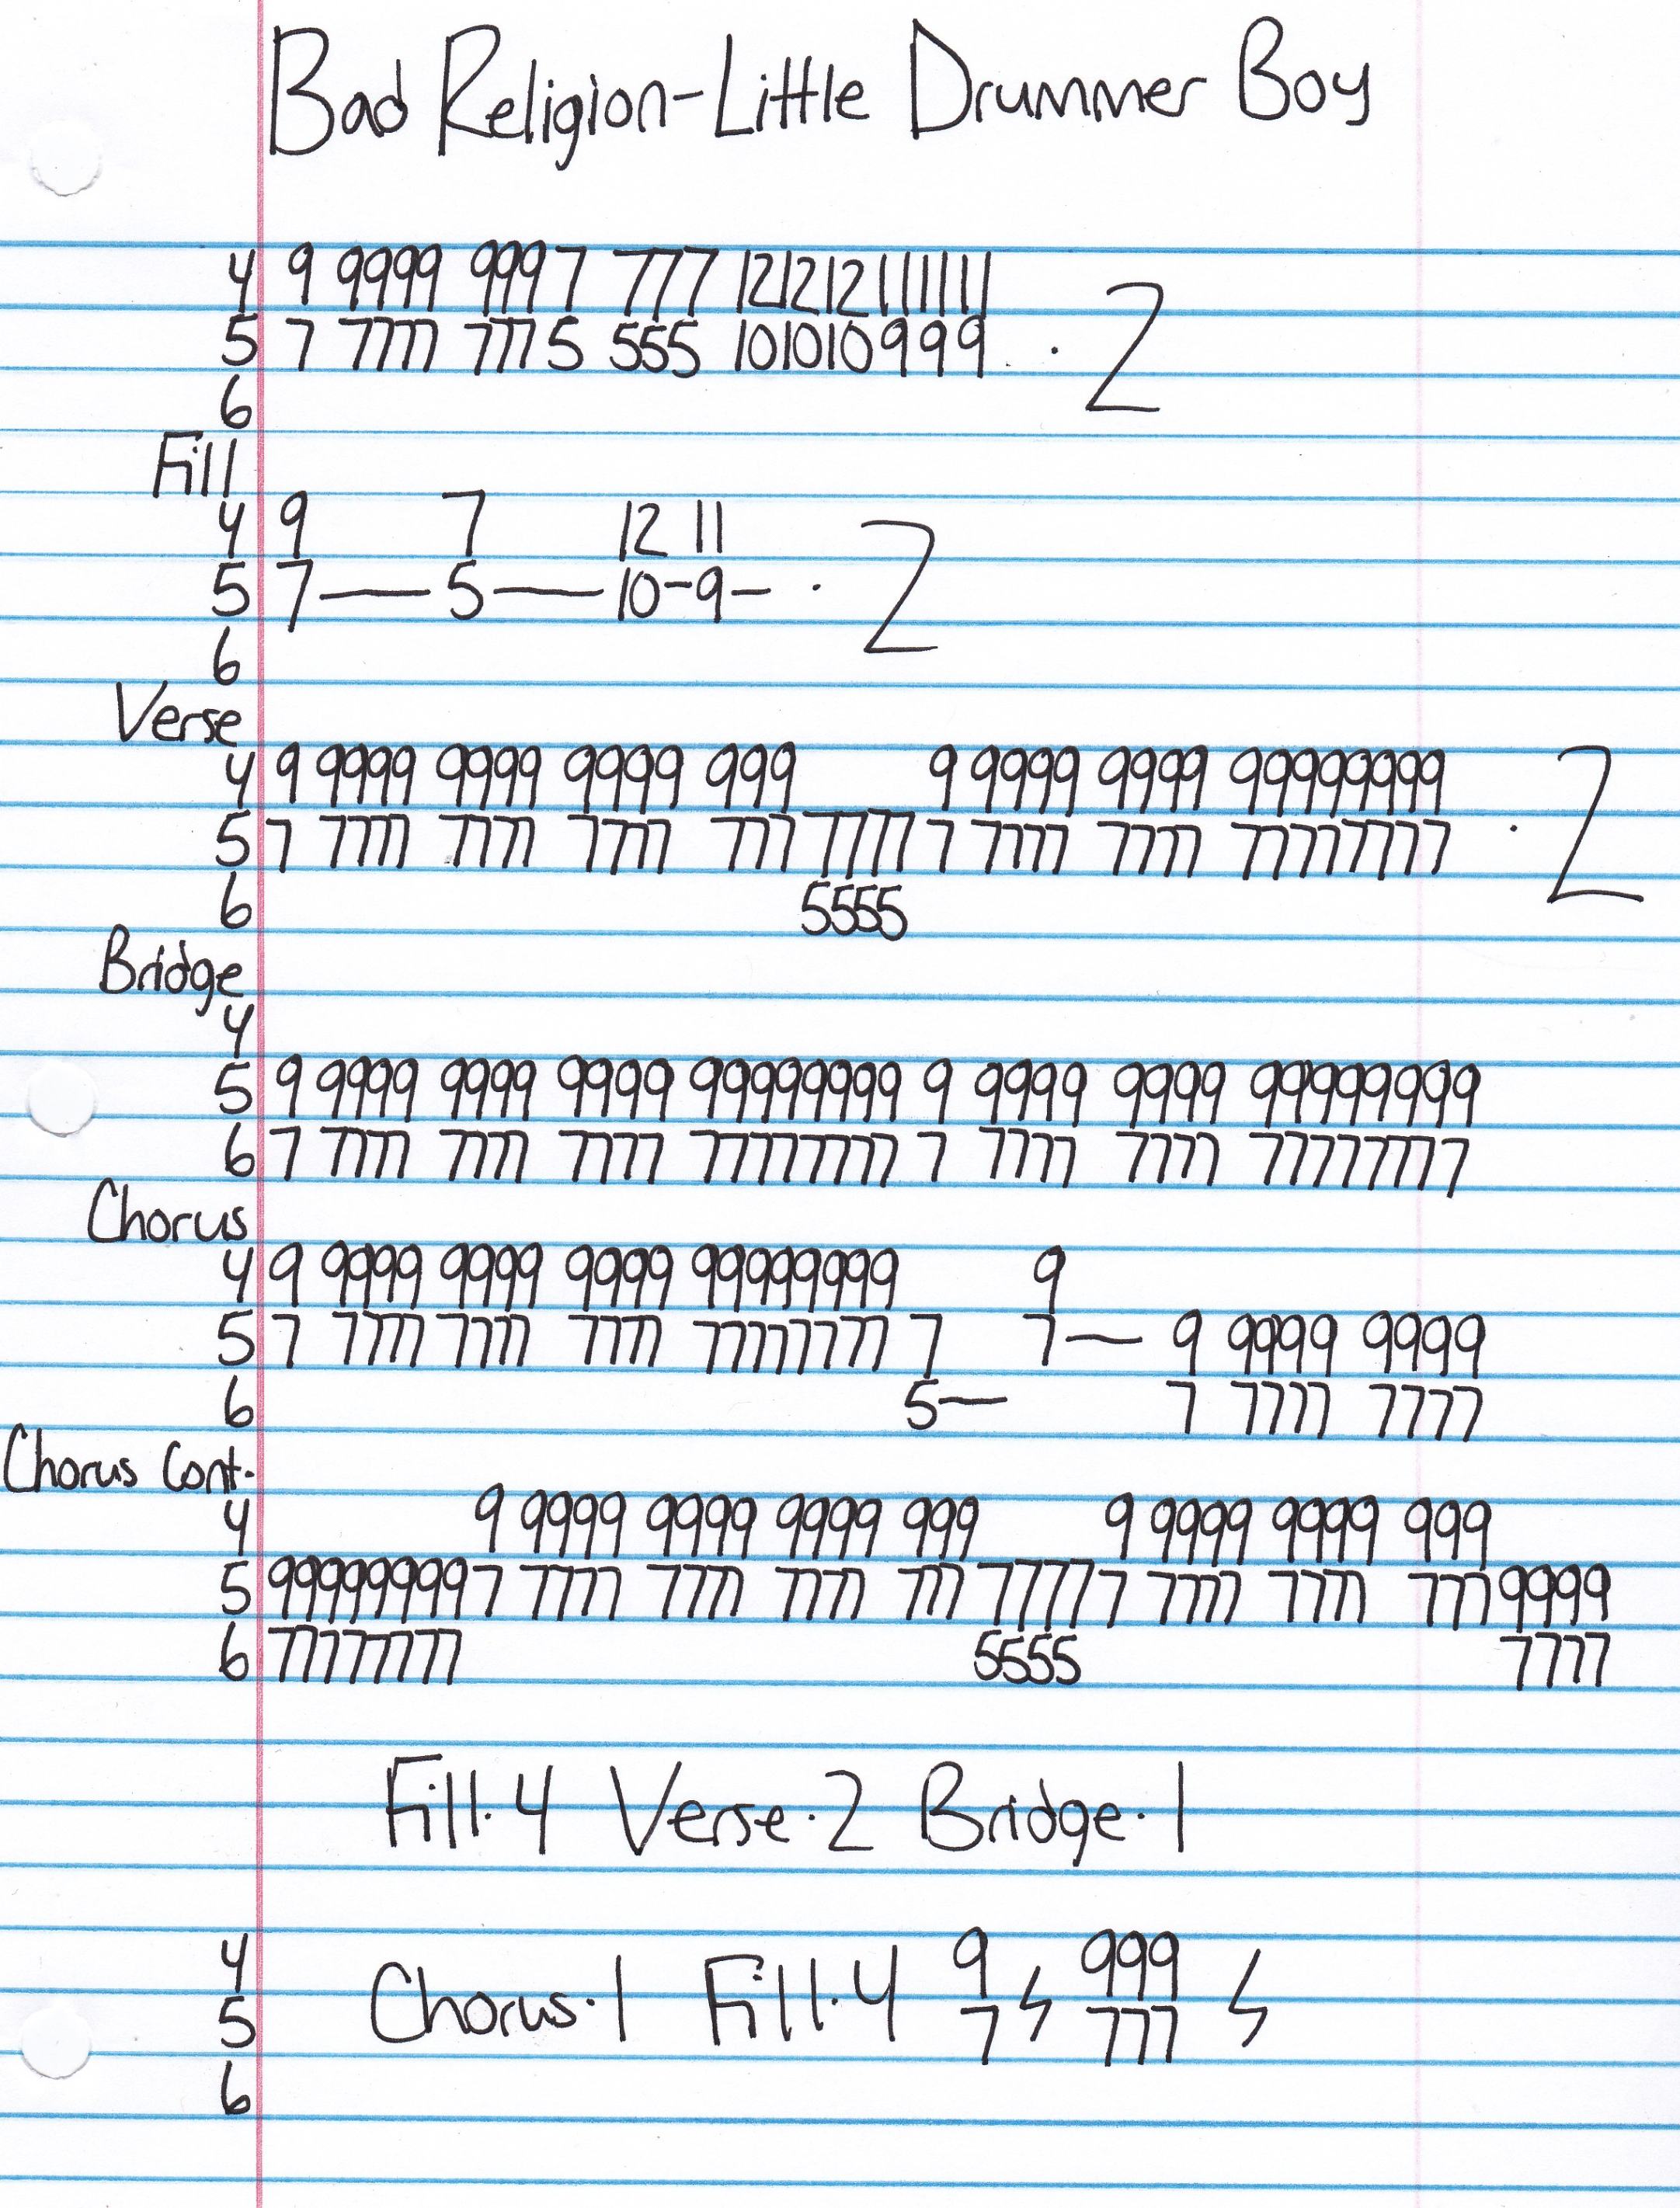 Bad Religion-Little Drummer Boy
4 9 9999 9997 777 121212111111
5 7 7777 7775 555 101010999 · 2
6
Fill
4 9 7 12 11
5 7—5—10-9- · 2
6
Verse
4 9 9999 9999 9999 999 9 9999 9999 99999999
5 7 7777 7777 7777 777 7777 7 7777 7777 77777777 · 2
6 5555
Bridge
4
5 9 9999 9999 9999 99999999 9 9999 9999 99999999
6 7 7777 7777 7777 77777777 7 7777 7777 77777777
Chorus
4 9 9999 9999 9999 99999999 9
5 7 7777 7777 7777 77777777 7 7— 9 9999 9999
6 5— 7 7777 7777
Chorus Cont.
4 9 9999 9999 9999 999 9 9999 9999 999
5 999999997 7777 7777 7777 777 77777 7777 7777 7779999
6 77777777 5555 7777
Fill·4 Verse·2 Bridge·1
4 9 999
5 Chorus·1 Fill·4 7 777
6